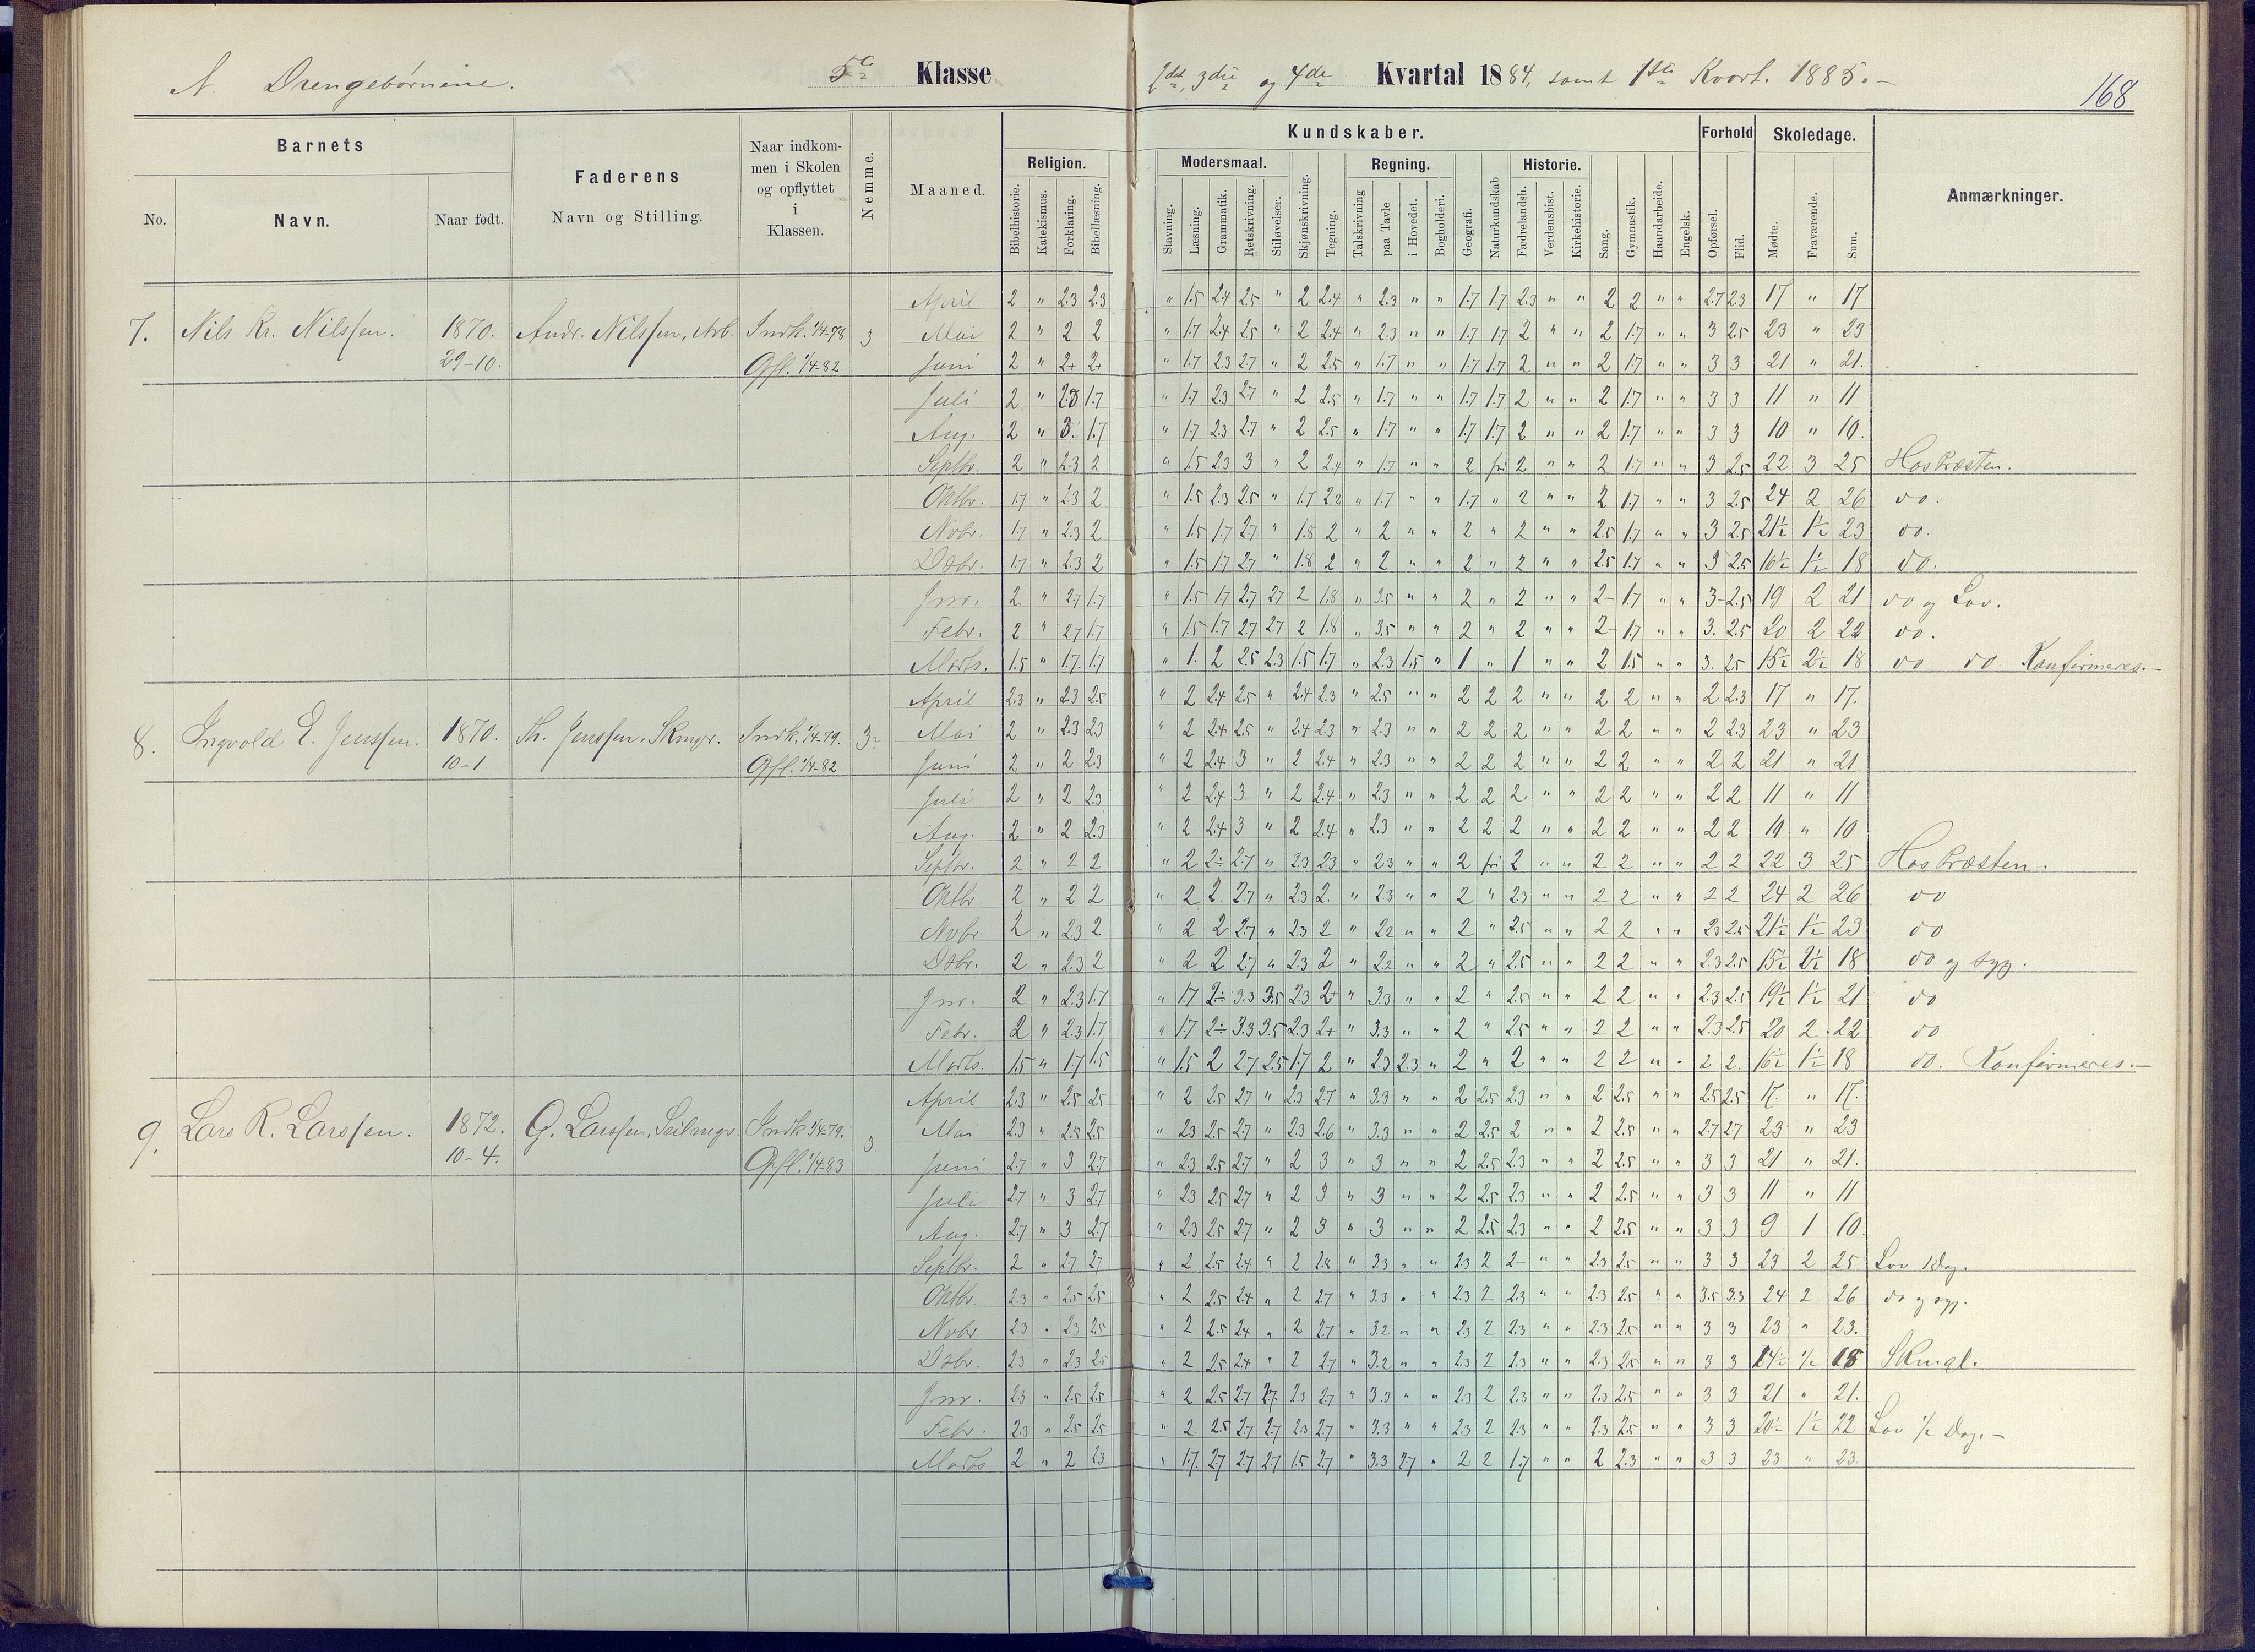 N. Drengebørnene. 5te Klasse 2det, 3die og 4de Kvartal 1884, samt 1ste Kvart. 1885.-
168
Barnets
No. Navn. Naar født.
Faderens
Navn og Stilling.
Naar indkom-
men i Skolen
og opflyttet
i
Klassen.
Nemme.
Maaned.
Kundskaber.
Religion.
Bibelhistorie. Katekismus. Forklaring. Bibellæsning.
Modersmaal.
Stavning. Læsning. Grammatik. Retskrivning. Stiløvelser.
Skjønskrivning. Tegning.
Regning.
Talskrivning paa Tavle i Hovedet. Bogholderi.
Geografi. Naturkundskab
Historie.
Fædrelandsh. Verdenshist. Kirkehistorie.
Sang. Gymnastik. Haandarbeide. Engelsk.
Forhold
Opførsel. Flid.
Skoledage.
Mødte. Fraværende. Sum.
Anmærkninger.
7. Nils Kr. Nilssen. 1870. 29-10. Andr. Nilssen, Arb. Indk. 1/4-78 Opfl. 1/4-82 3
April 2 " 2.3 2.3 " 1.5 2.4 2.5 " 2 2.4 " 2.3 " " 1.7 1.7 2.3 " " 2 2 " " 2.7 2.3 17 " 17
Mai 2 " 2 2 " 1.7 2.4 2.5 " 2 2.4 " 2.3 " " 1.7 1.7 2 " " 2 1.7 " " 3 2.5 23 " 23
Juni 2 " 2+ 2+ " 1.7 2.3 2.7 " 2 2.5 " 1.7 " " 1.7 1.7 2 " " 2 1.7 " " 3 3 21 " 21.
Juli 2 " 2.3 1.7 " 1.7 2.3 2.7 " 2 2.5 " 1.7 " " 1.7 1.7 2 " " 2 1.7 " " 3 3 11 " 11
Aug. 2 " 3. 1.7 " 1.7 2.3 2.7 " 2 2.5 " 1.7 " " 1.7 1.7 2 " " 2 1.7 " " 3 3 10 " 10.
Septbr. 2 " 2.3 2 " 1.5 2.3 3 " 2 2.4 " 1.7 " " 2 fri 2 " " 2 1.7 " " 3 2.5 22 3 25 Hos Præsten.
Oktbr. 1.7 " 2.3 2 " 1.5 2.3 2.5 " 1.7 2.2 " 1.7 " " 1.7 " 2 " " 2 1.7 " " 3 2.5 24 2 26 do.
Novbr. 1.7 " 2.3 2 " 1.5 1.7 2.7 " 1.8 2 " 2 " " 2 " 2 " " 2.5 1.7 " " 3 2.5 21½ 1½ 23 do.
Dsbr. 1.7 " 2.3 2 " 1.5 1.7 2.7 " 1.8 2 " 2 " " 2 " 2 " " 2.5 1.7 " " 3 2.5 16½ 1½ 18 do.
Jnr. 2 " 2.7 1.7 " 1.5 1.7 2.7 2.7 2 1.8 " 3.5 " " 2 " 2 " " 2- 1.7 " " 3- 2.5 19 2 21 do og Lov.
Febr. 2 " 2.7 1.7 " 1.5 1.7 2.7 2.7 2 1.8 " 3.5 " " 2 " 2 " " 2- 1.7 " " 3. 2.5 20 2 22 do.
Marts. 1.5 " 1.7. 1.7 " 1. 2 2.5 2.3 1.5 1.7 " 2.3 1.5 " 1 " 1 " " 2 1.5 " " 3. 2.5 15½ 2½ 18 do do. Konfirmeres.-
8. Ingvold E. Jenssen. 1870. 10-1. Th. Jenssen, Skmgr. Indk. 1/4-79. Opfl. 1/4-82 3-
April 2.3 " 2.3 2.5 " 2 2.4 2.5 " 2.4 2.3 " 2.5 " " 2 2 2 " " 2 2 " " 2 2.3 17 " 17.
Mai 2 " 2.3 2.3 " 2 2.4 2.5 " 2.4 2.3 " 2.3 " " 2 2 2 " " 2 2 " " 2 2.3 23 " 23
Juni 2 " 2 2.3 " 2 2.4 3 " 2 2.4 " 2.3 " " 2 2 2 " " 2 2 " " 2 2 21 " 21
Juli 2 " 2 2.3 " 2 2.4 3 " 2 2.4 " 2.3 " " 2 2 2 " " 2 2 " " 2 2 11 " 11
Aug. 2 " 2 2.3 " 2 2.4 3 " 2 2.4 " 2.3 " " 2 2 2 " " 2 2 " " 2 2 10 " 10
Septbr. 2 " 2 2 " 2 2÷ 2.7 " 2.3 2.3 " 2.3 " " 2 fri 2 " " 2 2 " " 2 2 22 3 25 Hos Præsten.
Oktbr. 2 " 2 2 " 2 2. 2.7 " 2.3 2. " 2.3 " " 2 " 2.3 " " 2 2 " " 2 2 24 2 26 do
Novbr. 2 " 2.3 2 " 2 2 2.7 " 2.3 2 " 2.2 " " 2 " 2.5 " " 2 2 " " 2.3 2.5 21½ 1½ 23 do
Dsbr. 2 " 2.3 2 " 2 2 2.7 " 2.3 2 " 2.2 " " 2 " 2.5 " " 2 2 " " 2.3 2.5 15½ 2½ 18 do og syg.
Jnr. 2 " 2.3 1.7 " 1.7 2÷ 3.3 3.5 2.3 2+ " 3.3 " " 2 " 2.5 " " 2 2 " " 2.3 2.5 19½ 1½ 21 do
Febr. 2 " 2.3 1.7 " 1.7 2÷ 3.3 3.5 2.3 2+ " 3.3 " " 2 " 2.5 " " 2 2 " " 2.3 2.5 20 2 22 do
Marts. 1.5 " 1.7 1.5 " 1.5 2 2.7 2.5 1.7 2 " 2.3 2.3 " 2 " 2 " " 2 2 " " 2 2. 16½ 1½ 18 do. Konfirmeres.-
9. Lars R. Larssen. 1872. 10-4. G. Larssen, Seilmgr. Indk 1/4-79. Opfl. 1/4-83 3
April 2.3 " 2.5 2.5 " 2 2.5 2.7 " 2.3 2.7 " 3.3 " " 2 2.5 2.3 " " 2 2.5 " " 2.5 2.5 17. " 17.
Mai 2.3 " 2.5 2.5 " 2.3 2.5 2.7 " 2.3 2.6 " 3.3 " " 2 2.5 2 " " 2 2.5 " " 2.7 2.7 23 " 23
Juni 2.7 " 3 2.7 " 2.3 2.5 2.7 " 2 3 " 3 " " 2 2.5 2.3 " " 2 2.5 " " 3 3 21 " 21.
Juli 2.7 " 3 2.7 " 2.3 2.5 2.7 " 2 3 " 3 " " 2 2.5 2.3 " " 2 2.5 " " 3 3 11 " 11
Aug. 2.7 " 3 2.7 " 2.3 2.5 2.7 " 2 3 " 3 " " 2 2.5 2.3 " " 2 2.5 " " 3 3 9 1 10.
Septbr. 2 " 2.7 2.7 " 2 2.5 2.4 " 2 2.8 " 3.3 " " 2.3 2 2- " " 2.3 2.5 " " 3 3 23 2 25 Lov 1 Dag.
Oktbr. 2.3 " 2.5 2.5 " 2 2.5 2.4 " 2 2.7 " 3.3 " " 2.3 2 2.3 " " 2.3 2.5 " " 3.5 3.3 24 2 26 do og syg.
Novbr 2.3 " 2.3 2.5 " 2 2.5 2.4 " 2 2.7 " 3.2 " " 2.3 2 2.3 " " 2.3 2.5 " " 3 3 23 " 23.
Dsbr. 2.3 " 2.3 2.5 " 2 2.5 2.4 " 2 2.7 " 3.2 " " 2.3 2 2.3 " " 2.3 2.5 " " 3 3 14½ ½ 15 Skmgl.
Jnr. 2.3 " 2.5 2.5 " 2 2.5 2.7 2.7 2.3 2.7 " 3.3 " " 2.3 2 2.3 " " 2.3 2.5 " " 3 3 21 " 21.
Febr. 2.3 " 2.5 2.5 " 2 2.5 2.7 2.7 2.3 2.7 " 3.3 " " 2.3 2 2.3 " " 2.3 2.5 " " 3 3 20½ 1½ 22 Lov ½ Dag.-
Marts 2 " 2 2.3 " 1.7. 2.7 2.7 2.7 1.5 2.7 " 3.3 2.7 " 2 2 1.7 " " 2 2.3 " " 3 3 23 " 23.